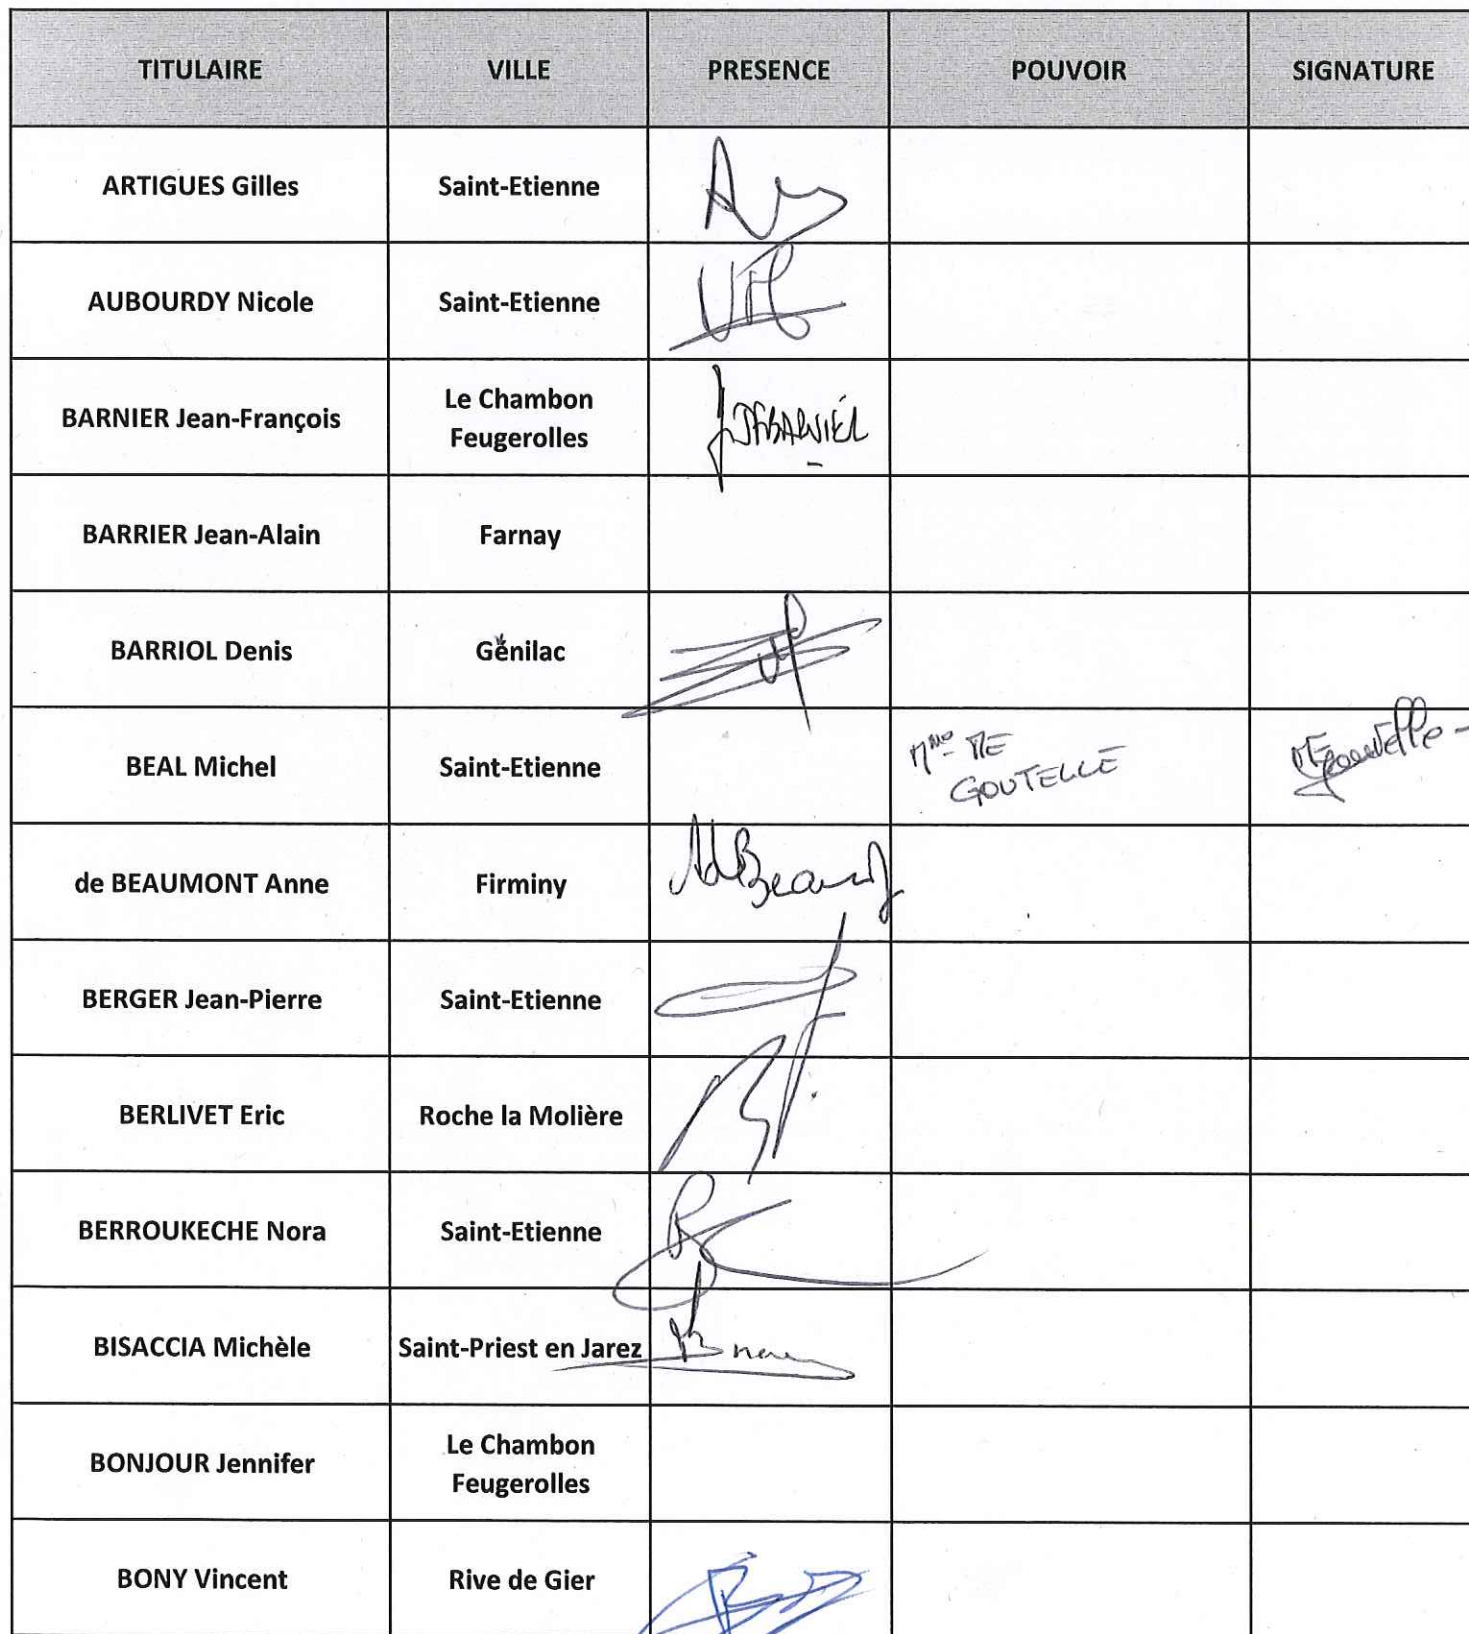 TITULAIRE VILLE PRESENCE POUVOIR SIGNATURE
ARTIGUES Gilles Saint-Etienne
AUBOURDY Nicole Saint-Etienne
BARNIER Jean-François Le Chambon
Feugerolles
BARRIER Jean-Alain Farnay
BARRIOL Denis Génilac
BEAL Michel Saint-Etienne Mme ME
GOUTELLE
de BEAUMONT Anne Firminy
BERGER Jean-Pierre Saint-Etienne
BERLIVET Eric Roche la Molière
BERROUKECHE Nora Saint-Etienne
BISACCIA Michèle Saint-Priest en Jarez
BONJOUR Jennifer Le Chambon
Feugerolles
BONY Vincent Rive de Gier